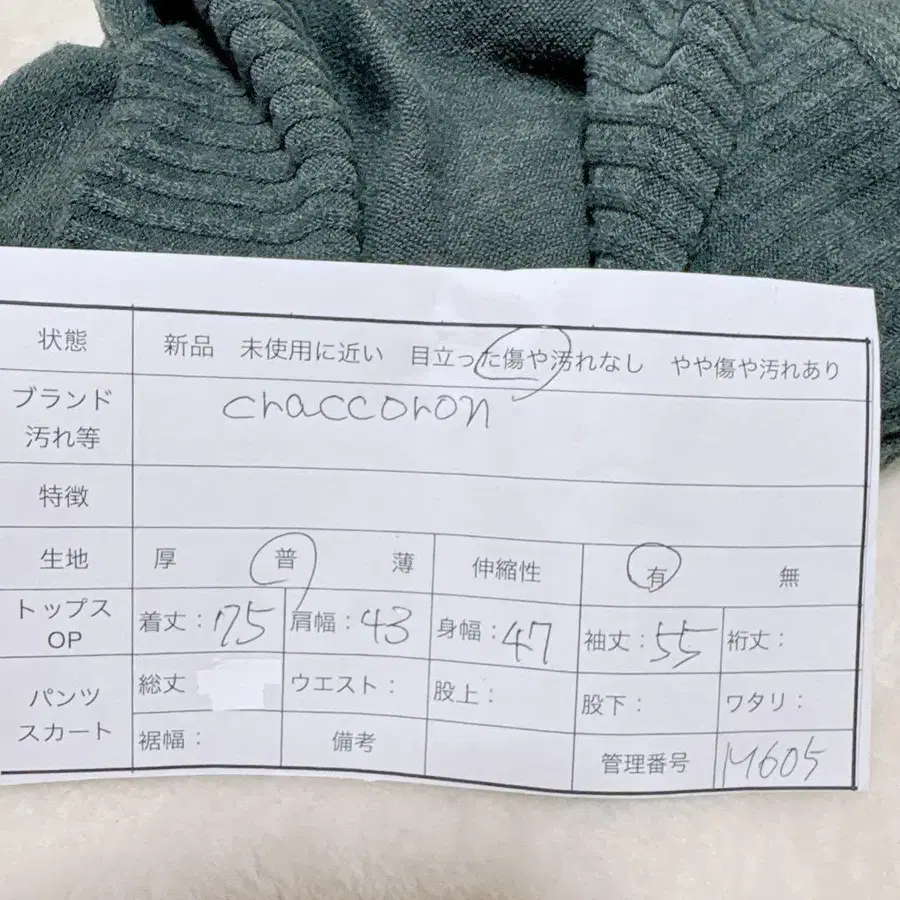 状態 新品 未使用に近い 目立った傷や汚れなし やや傷や汚れあり
ブランド craccoron
汚れ等
特徴
生地 厚 普 薄 伸縮性 有 無
トップス 着丈：75 肩幅：43 身幅：47 袖丈：55 裄丈：
OP
パンツ 総丈 ウエスト： 股上： 股下： ワタリ：
スカート 裾幅： 備考 管理番号 M605